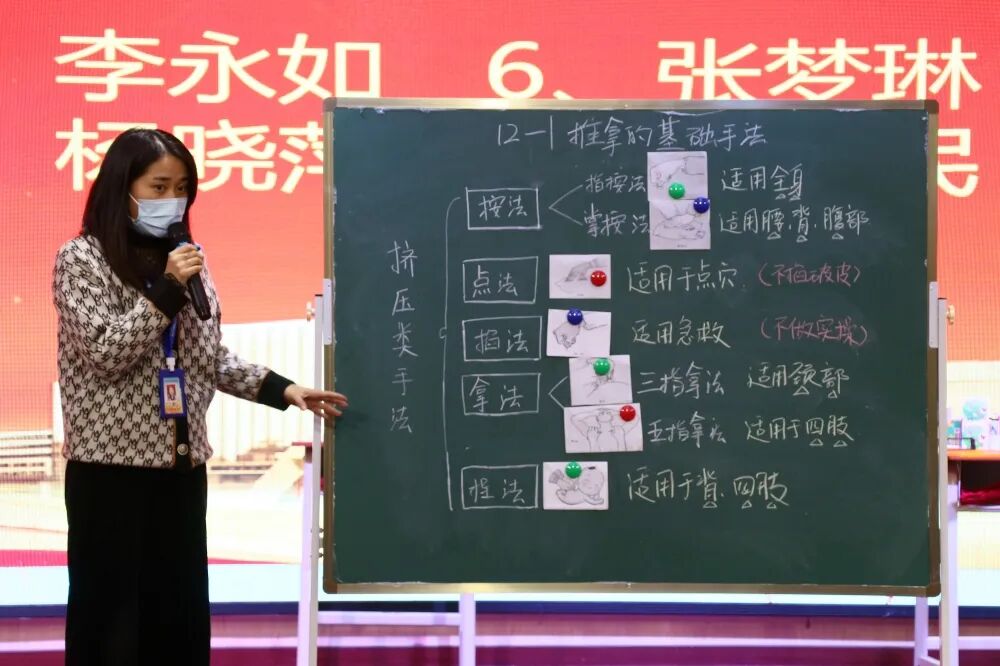 李永如 6、张梦琳
杨晓萍
民
12-1推拿的基础手法
挤压类手法
按法
指按法 适用全身
掌按法 适用腰.背.腹部
点法 适用于点穴.(不掐破皮)
掐法 适用急救 (不做实操)
拿法
三指拿法 适用颈部
五指拿法 适用于四肢
捏法 适用于背.四肢